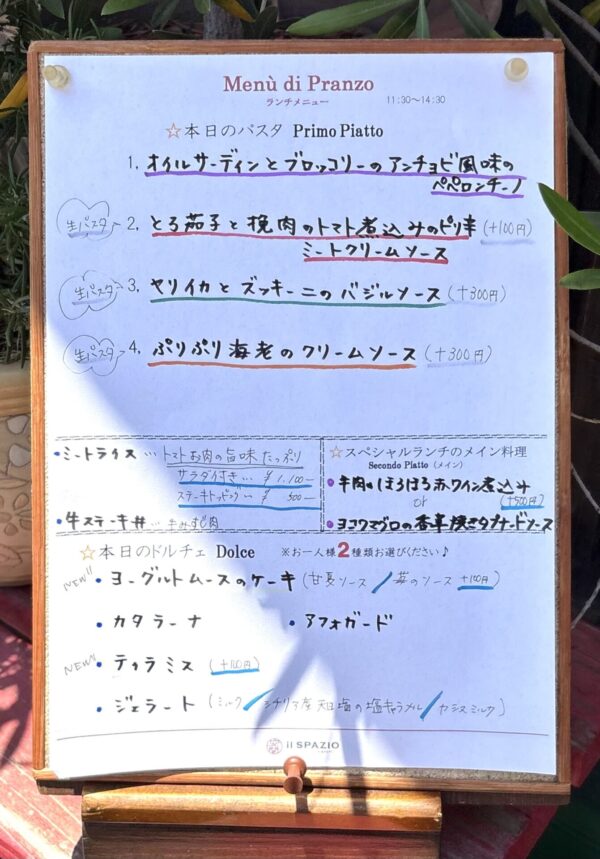 Menù di Pranzo
ランチメニュー
11:30〜14:30
☆本日のパスタ Primo Piatto
1. オイルサーディンとブロッコリーのアンチョビ風味の
ペペロンチーノ
生パスタ 2. とろ茄子と挽肉のトマト煮込みのピリ辛 (+100円)
ミートクリームソース
生パスタ 3. ヤリイカとズッキーニのバジルソース (+300円)
生パスタ 4. ぷりぷり海老のクリームソース (+300円)
・ミートライス… トマトお肉の旨味たっぷり
サラダ付き… ¥1,100-
ステーキトッピング… ¥500-
・牛ステーキ丼…
☆スペシャルランチのメイン料理
Secondo Piatto (メイン)
・牛肉のほろほろ赤ワイン煮込み
or (+500円)
・ヨコワマグロの香草焼きタプナードソース
☆本日のドルチェ Dolce ※お一人様2種類お選びください♪
NEW!! ・ヨーグルトムースのケーキ (甘夏ソース / 苺のソース +100円)
・カタラーナ ・アフォガード
NEW!! ・ティラミス (+100円)
・ジェラート (ミルク / シチリア産天日塩の塩キャラメル / カシスミルク)
il SPAZIO